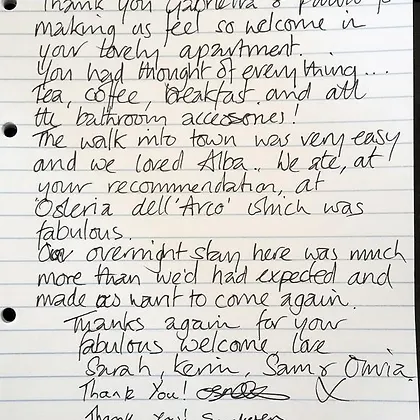 Thank you Gabriella & Paolo for
making us feel so welcome in
your lovely apartment.
You had thought of everything...
Tea, coffee, breakfast and all
the bathroom accessories!
The walk into town was very easy
and we loved Alba. We ate, at
your recommendation, at
'Osteria dell'Arco' which was
fabulous.
Our overnight stay here was much
more than we'd had expected and
made us want to come again.
Thanks again for your
fabulous welcome love
Sarah, Kevin, Sam & Olivia.
Thank You! X
Thank You!